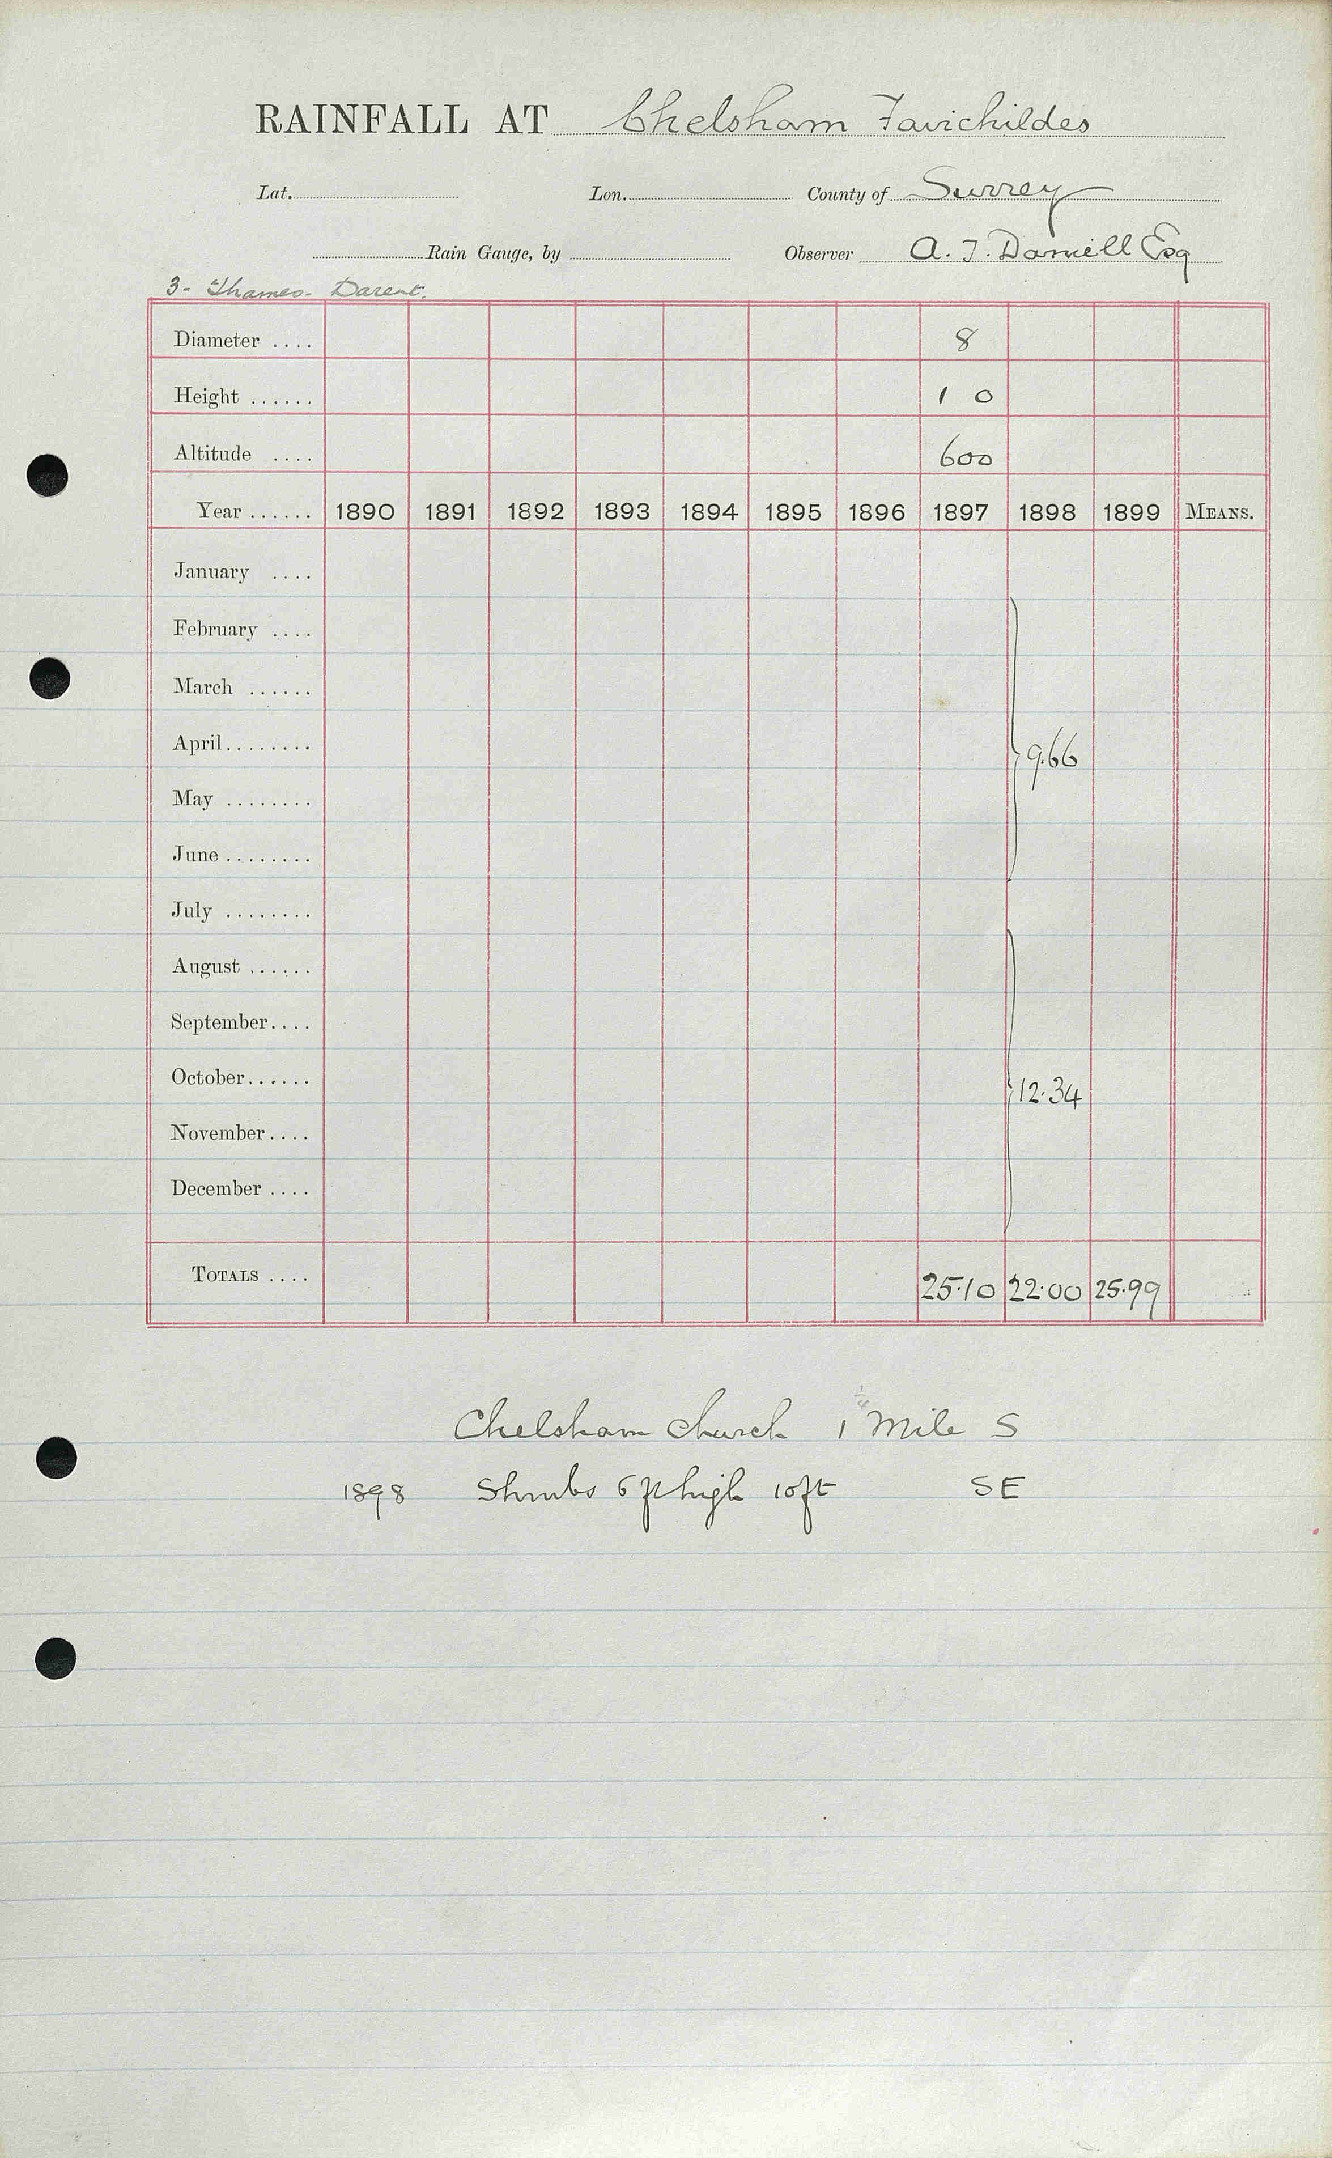 RAINFALL AT Chelsham Fairchildes
Lat. Lon. County of Surrey
Rain Gauge, by Observer A. J. Daniell Esq
3 - Thames - Darent.
Diameter .... 8
Height ...... 1 0
Altitude .... 600
Year ...... 1890 1891 1892 1893 1894 1895 1896 1897 1898 1899 MEANS.
January ....
February ....
March ......
April ........ 9.66
May ........
June ........
July ........
August ......
September ....
October ...... 12.34
November ....
December ....
TOTALS .... 25.10 22.00 25.99
Chelsham Church 1 1/4 Mile S
1898 Shrubs 6 ft high 10 ft SE